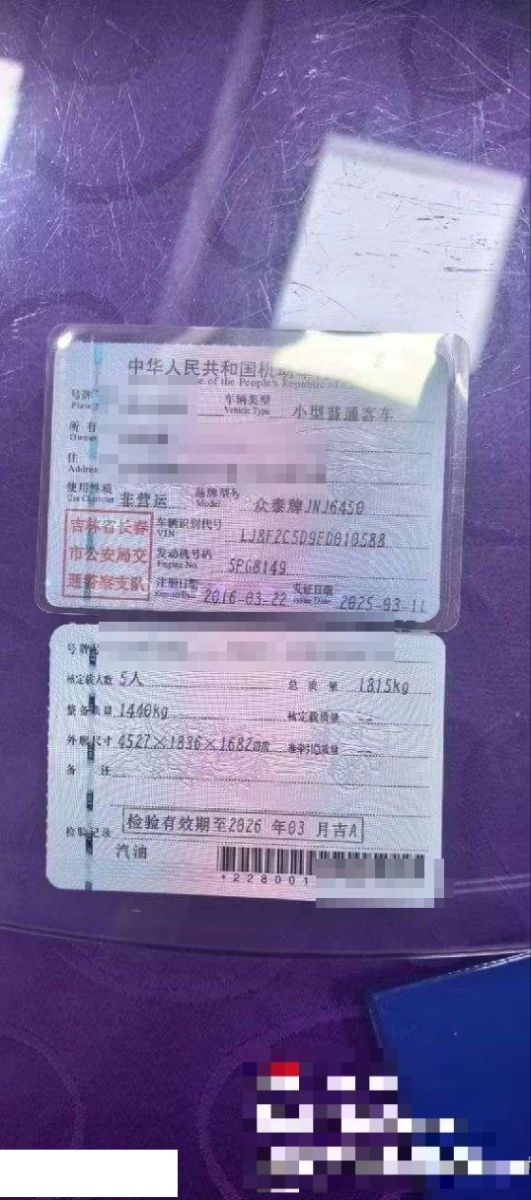 中华人民共和国机动车
e of the People's Republic of
号牌
Plate
车辆类型
Vehicle Type
小型普通客车
所有
Owner
住
Address
使用性质
Use Character
非营运
品牌型号
Model
众泰牌JNJ6450
吉林省长春
市公安局交
通警察支队
车辆识别代号
VIN
LJ8F2C5D9FD010588
发动机号码
Engine No.
SPG8149
注册日期
Register Date
2016-03-22
发证日期
Issue Date
2025-03-11
号牌
核定载人数 5人
总质量 1815kg
整备质量 1440kg
核定载质量 --
外廓尺寸 4527×1836×1682mm
准牵引总质量 --
备注
检验记录
检验有效期至2026年03月吉A
汽油
*228001